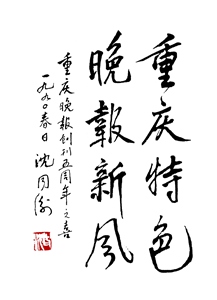 重庆特色
晚报新风
重庆晚报创刊五周年之喜
一九九〇春日 沈同衡